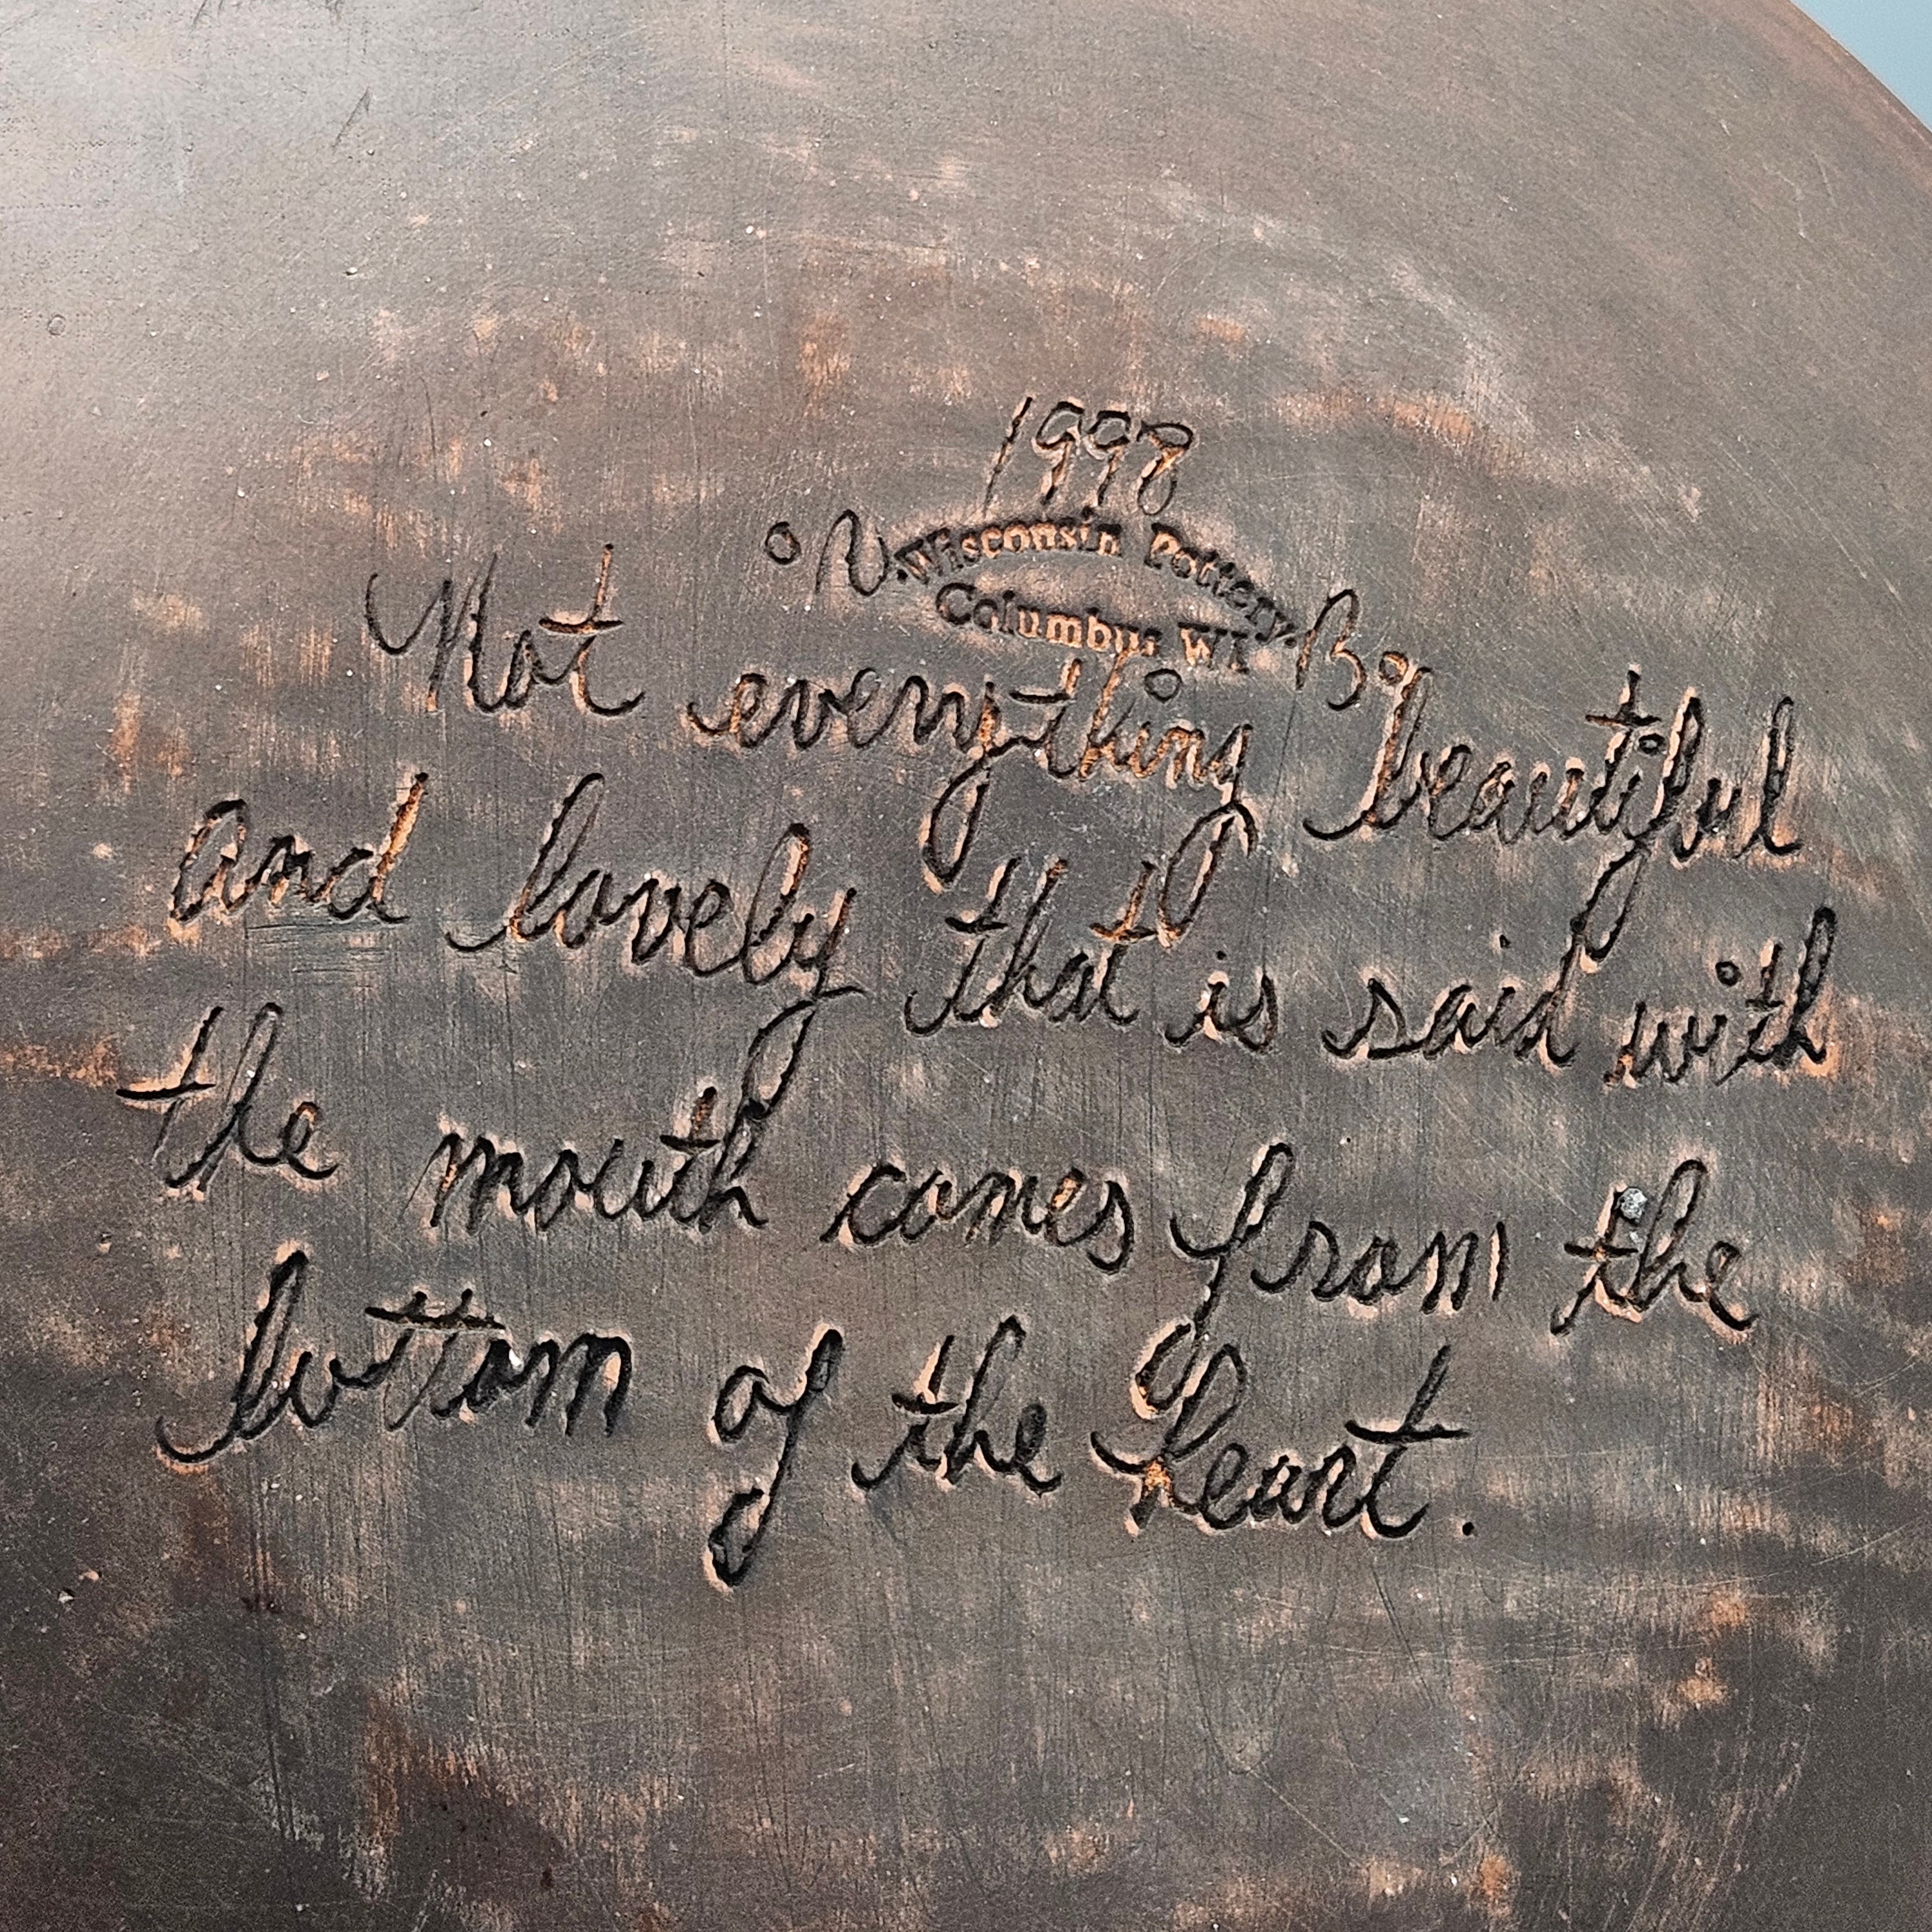 1998
°N. Wisconsin Pottery. B°
Columbus WI
Not everything beautiful
and lovely that is said with
the mouth comes from the
bottom of the heart.